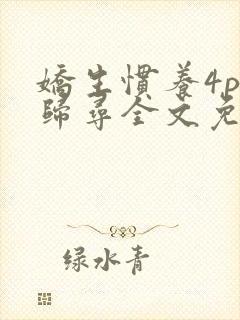 嬌生慣養4p
歸尋全文免
绿水青